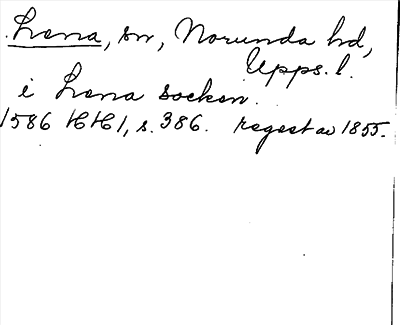 Lena, sn, Norunda hd,
Upps. l.
i Lena socken.
1586 HH 1, s. 386. regest av 1855.